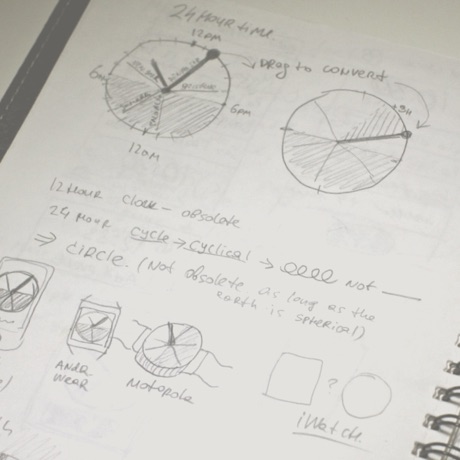 24 HOUR TIME.
12PM
DRAG TO CONVERT
6AM
6PM
12AM
12 HOUR CLOCK - OBSOLETE
24 HOUR CYCLE → CYCLICAL → NOT
⇒ CIRCLE. (NOT OBSOLETE AS LONG AS THE
EARTH IS SPHERICAL)
ANDR.
WEAR
MOTOROLA
?
iWATCH.